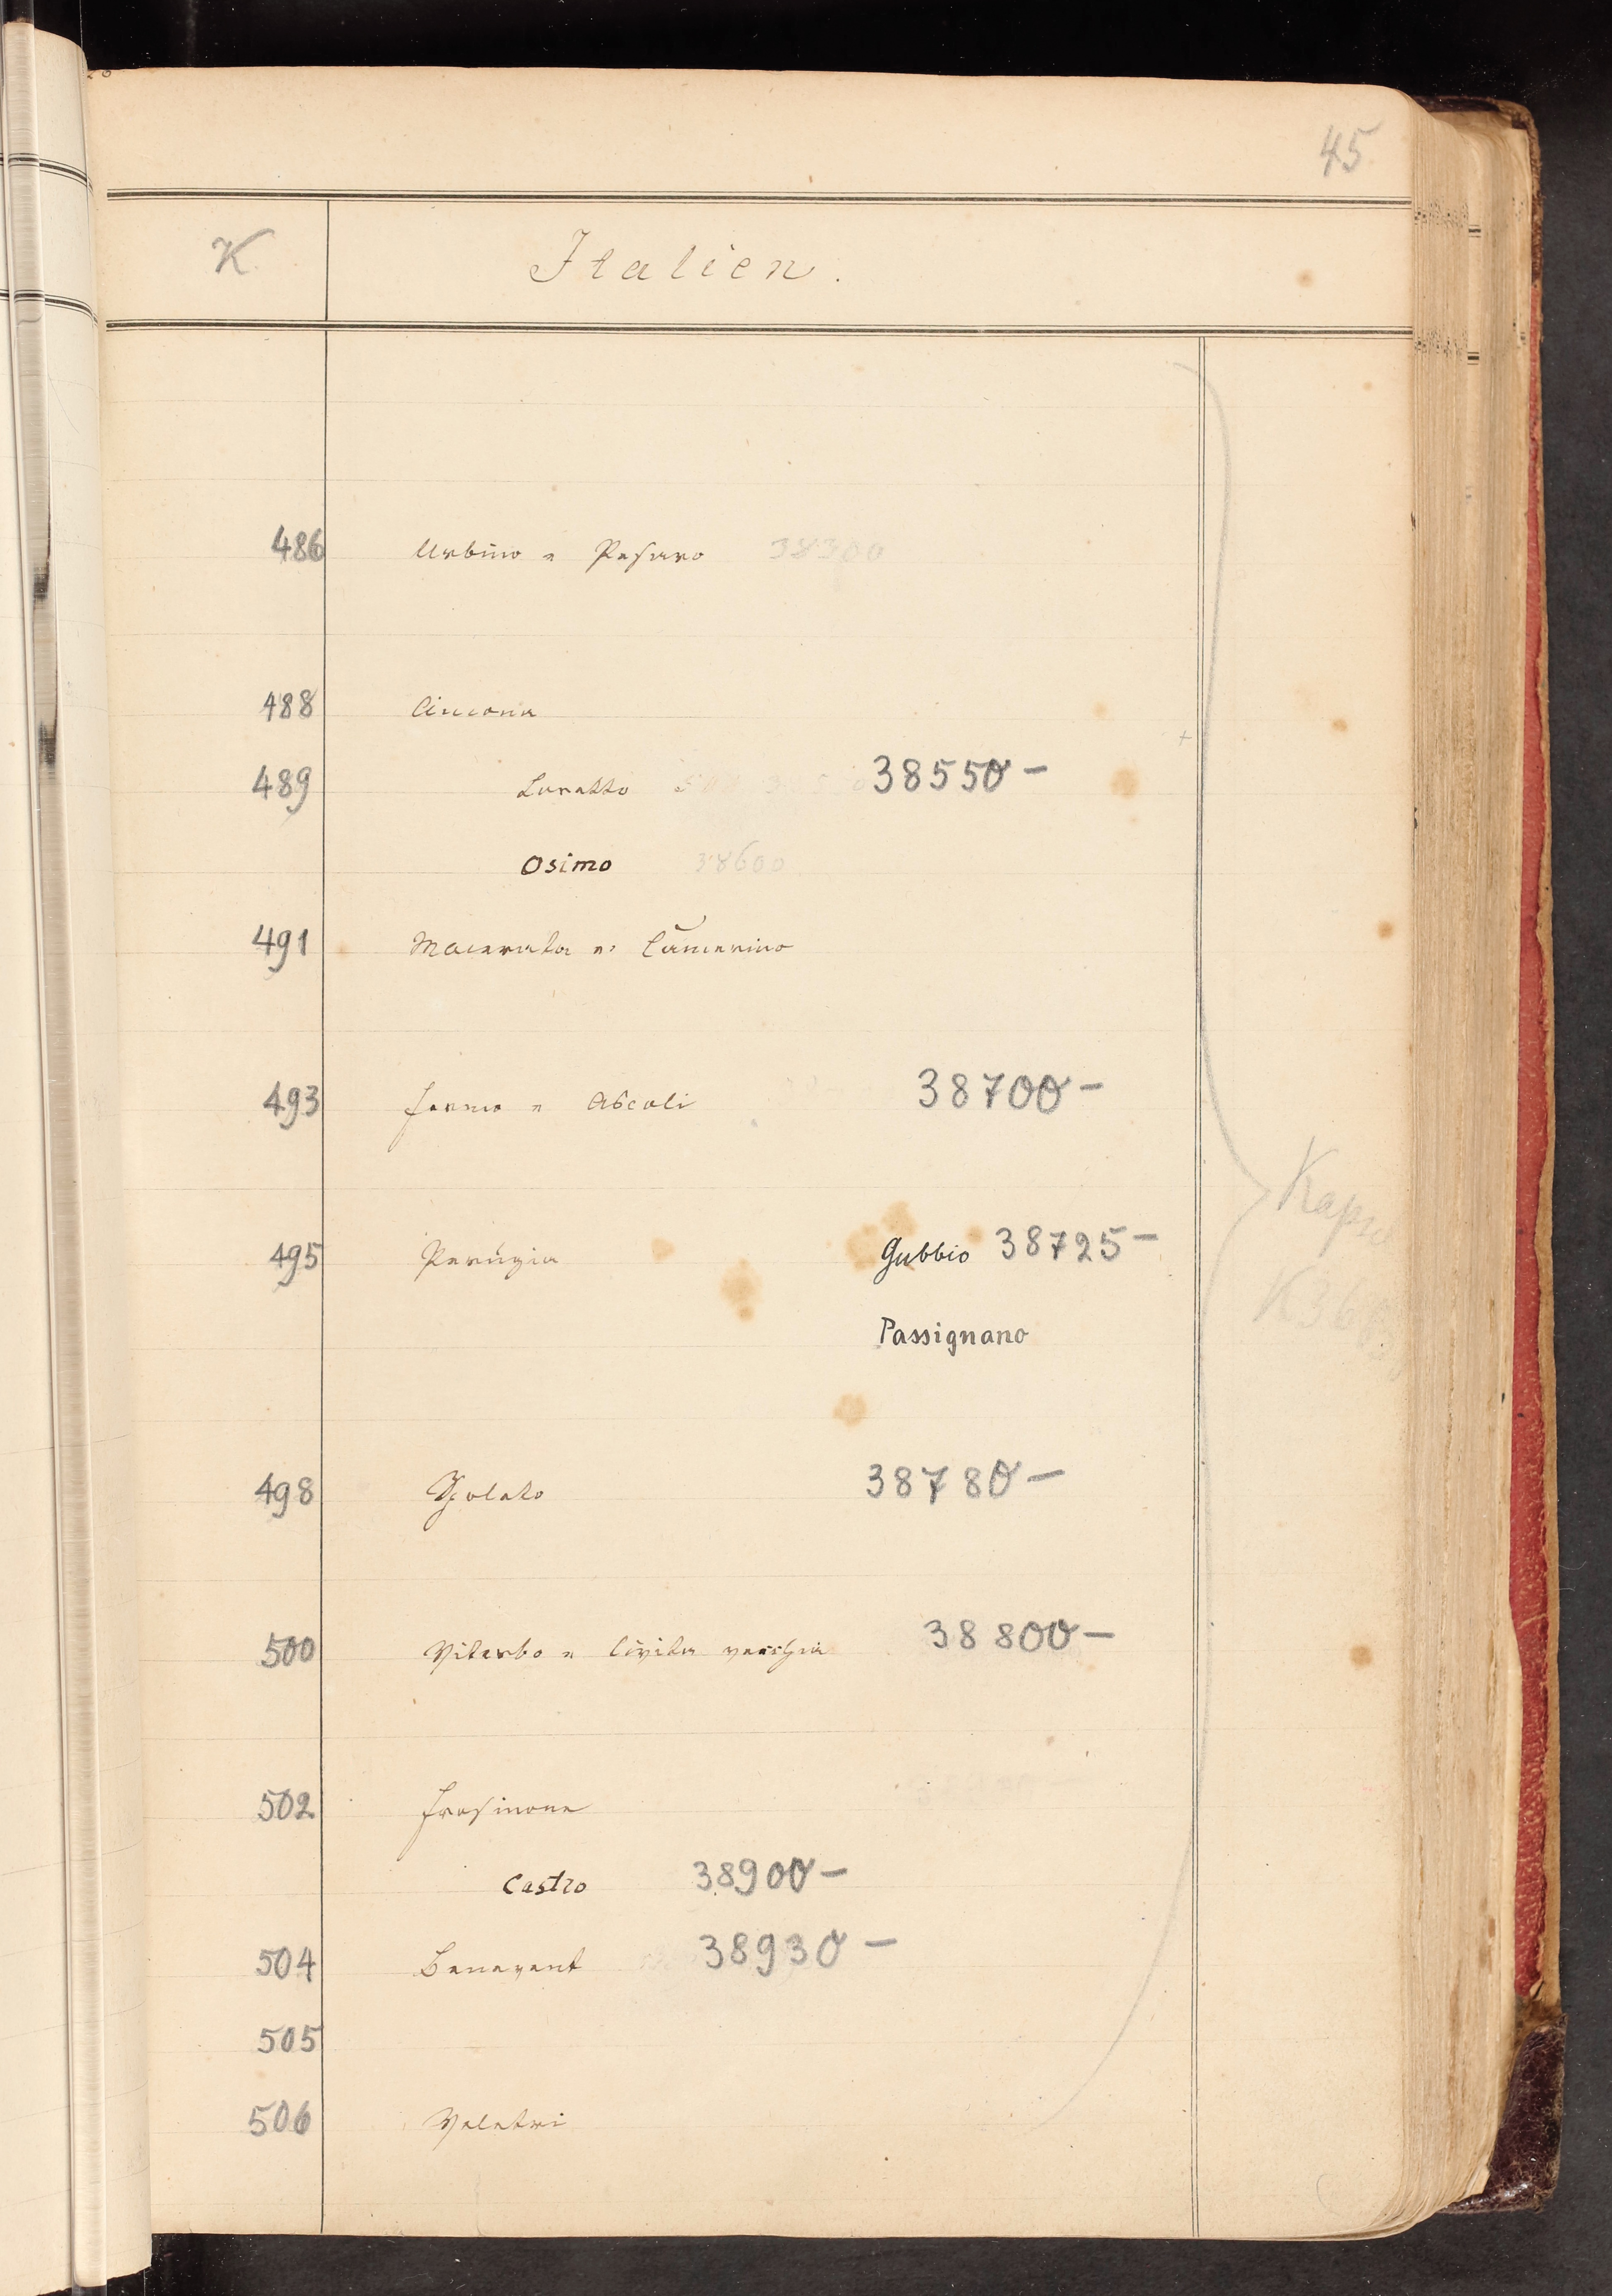 45
K. Italien.
486 Urbino u Pesaro 38300
488 Ancona
489 Loretto 38550 –
Osimo 38600
491 Macerata u. Camerino
493 Fermo u Ascoli 38700 –
495 Perugia Gubbio 38725 –
Passignano
498 Spoleto 38780 –
500 Viterbo u Civita vecchia 38800 –
502 Frosinone
Castro 38900 –
504 Benevent 38930 –
505
506 Veletri